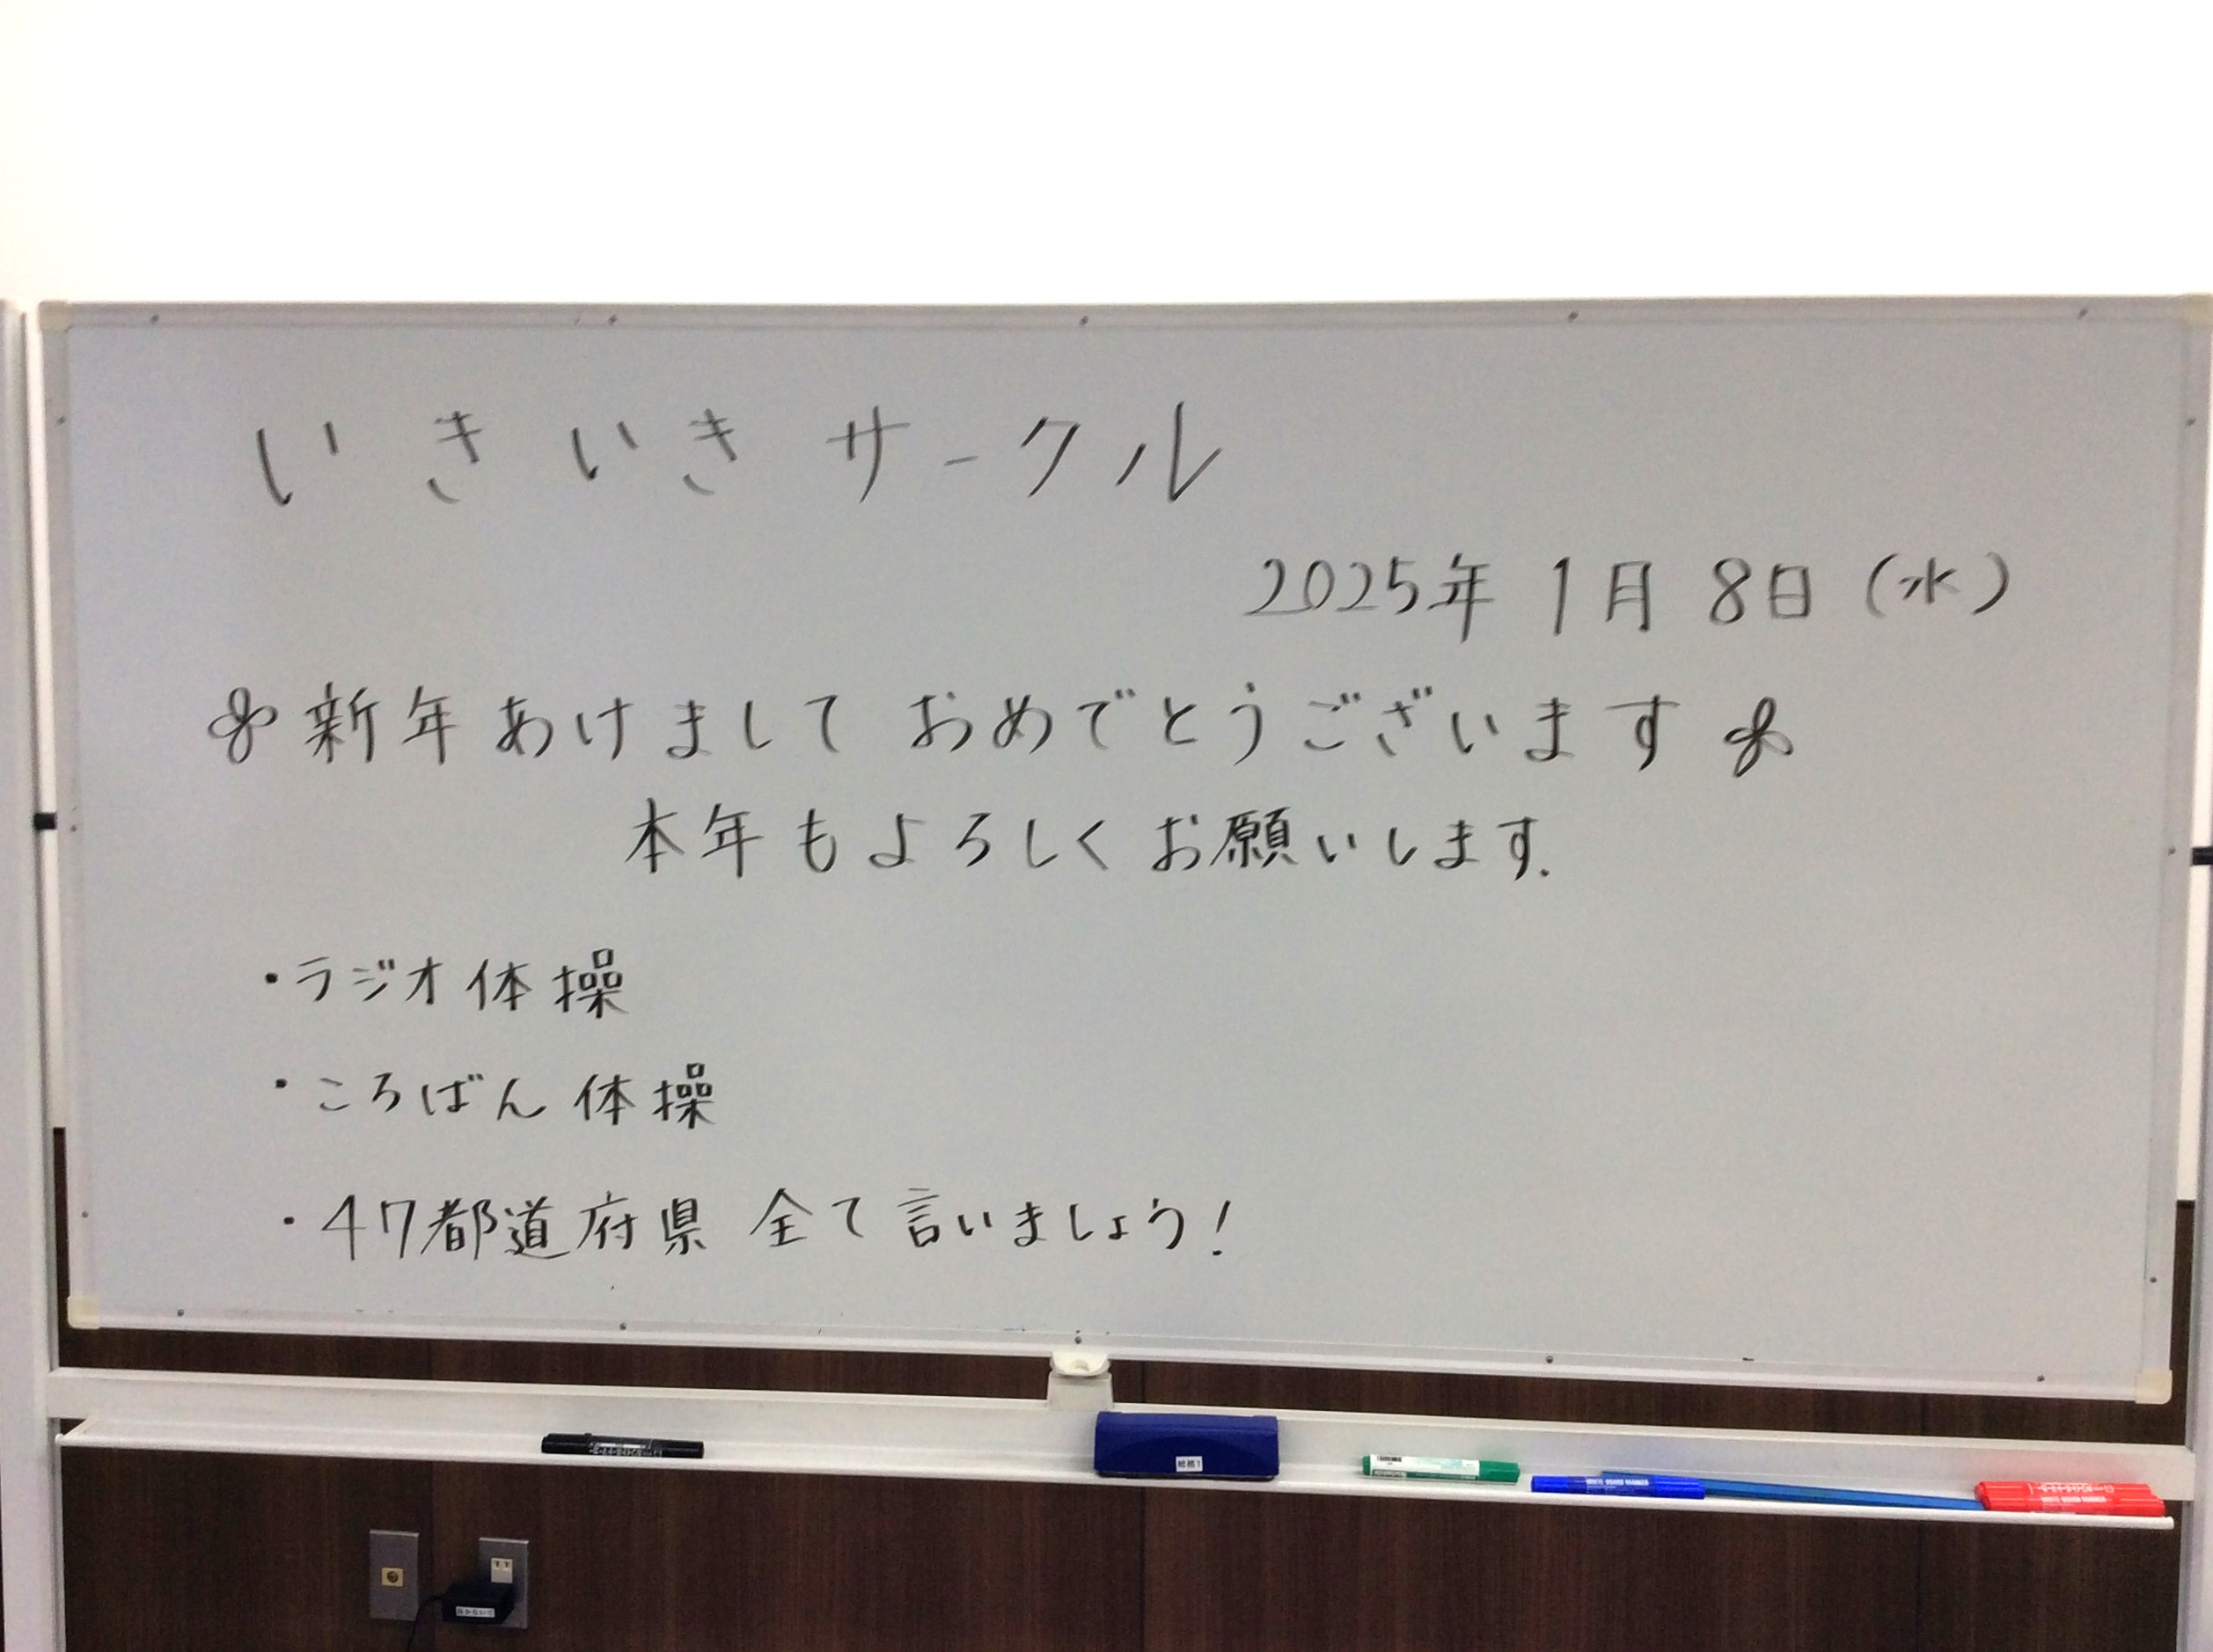 いきいきサークル
2025年 1月 8日 (水)
新年あけまして おめでとうございます
本年もよろしくお願いします.
・ラジオ体操
・ころばん体操
・47都道府県 全て言いましょう!
WHITE BOARD MARKER
WHITE BOARD MARKER